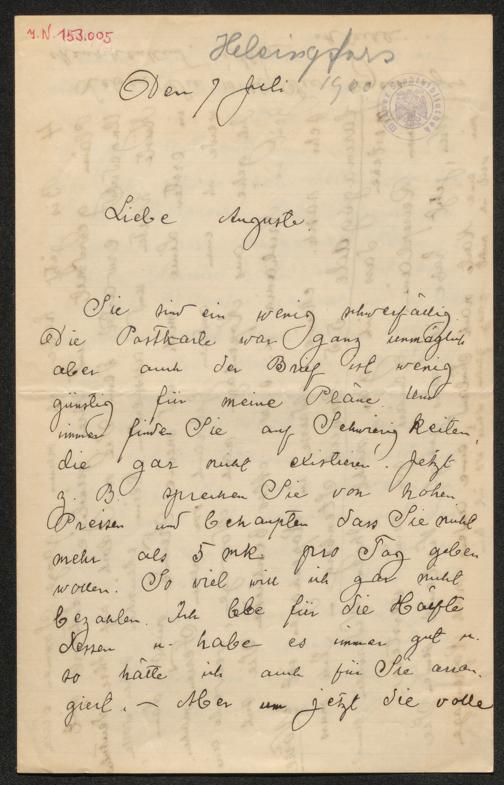 J.N. 153.005
Helsingfors
Den 7 Juli 1900
Liebe Auguste.
Sie sind ein wenig schwerfällig.
Die Postkarte war ganz unmöglich
aber auch der Brief ist wenig
günstig für meine Pläne. Und
immer finden Sie auf Schwierigkeiten,
die gar nicht existieren. Jetzt
z. B. sprechen Sie von hohen
Preisen und behaupten dass Sie nicht
mehr als 5 mk pro Tag geben
wollen. So viel will ich gar nicht
bezahlen. Ich lebe für die Hälfte
dessen u. habe es immer gut u.
so hätte ich auch für Sie arran-
giert. — Aber jetzt die volle